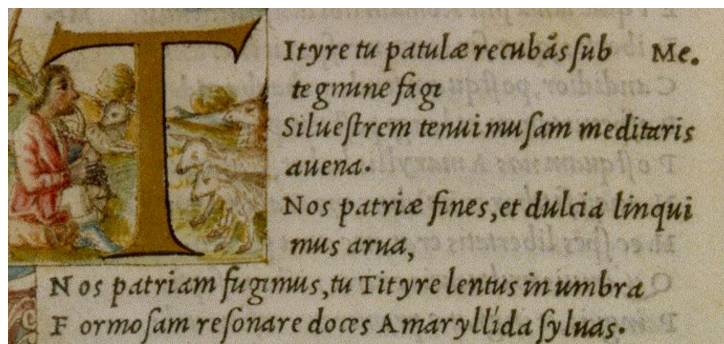 Tityre tu patulæ recubãs sub Me.
tegmine fagi
Siluestrem tenui musam meditaris
auena.
Nos patriæ fines, et dulcia linqui
mus arua,
Nos patriam fugimus, tu Tityre lentus in umbra
Formosam resonare doces Amaryllida syluas.